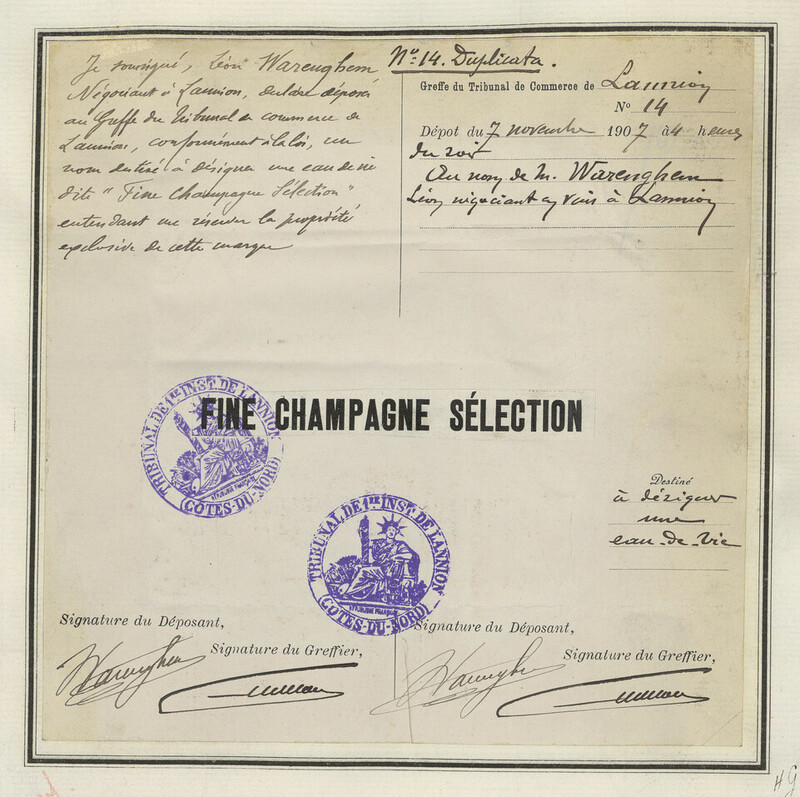 Je soussigné, Léon Warenghem
Négociant à Lannion, déclare déposer
au Greffe du Tribunal de commerce de
Lannion, conformément à la loi, un
nom destiné à désigner une eau de vie
dite "Fine Champagne Sélection"
entendant me réserver la propriété
exclusive de cette marque
No. 14. Duplicata.
Greffe du Tribunal de Commerce de Lannion
No 14
Dépot du 7 novembre 1907 à 4 heures
du soir
Au nom de M. Warenghem
Léon négociant en vins à Lannion
FINE CHAMPAGNE SÉLECTION
TRIBUNAL DE 1RE INST. DE LANNION
(CÔTES-DU-NORD)
TRIBUNAL DE 1RE INST. DE LANNION
(CÔTES-DU-NORD)
Destiné
à désigner
une
eau-de-vie
Signature du Déposant,
Signature du Greffier,
Warenghem
Signature du Déposant,
Signature du Greffier,
Warenghem
HG